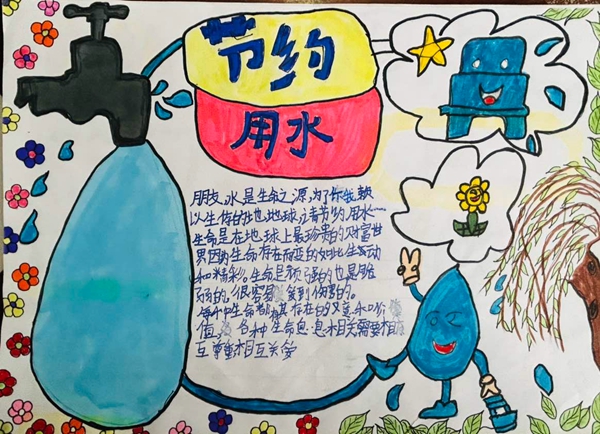 节约
用水
朋友,水是生命之源,为了你我
以生存的地地球,请节约用水
生命是在地球上最珍贵的财富世
界因为生命存在而变的如此生动
和精彩。生命是顽强的也是脆
弱的,很容易受到伤害的。
每个中生命都其存在的义意和价
值,各种生命息息相关需要相
互尊重相互关爱